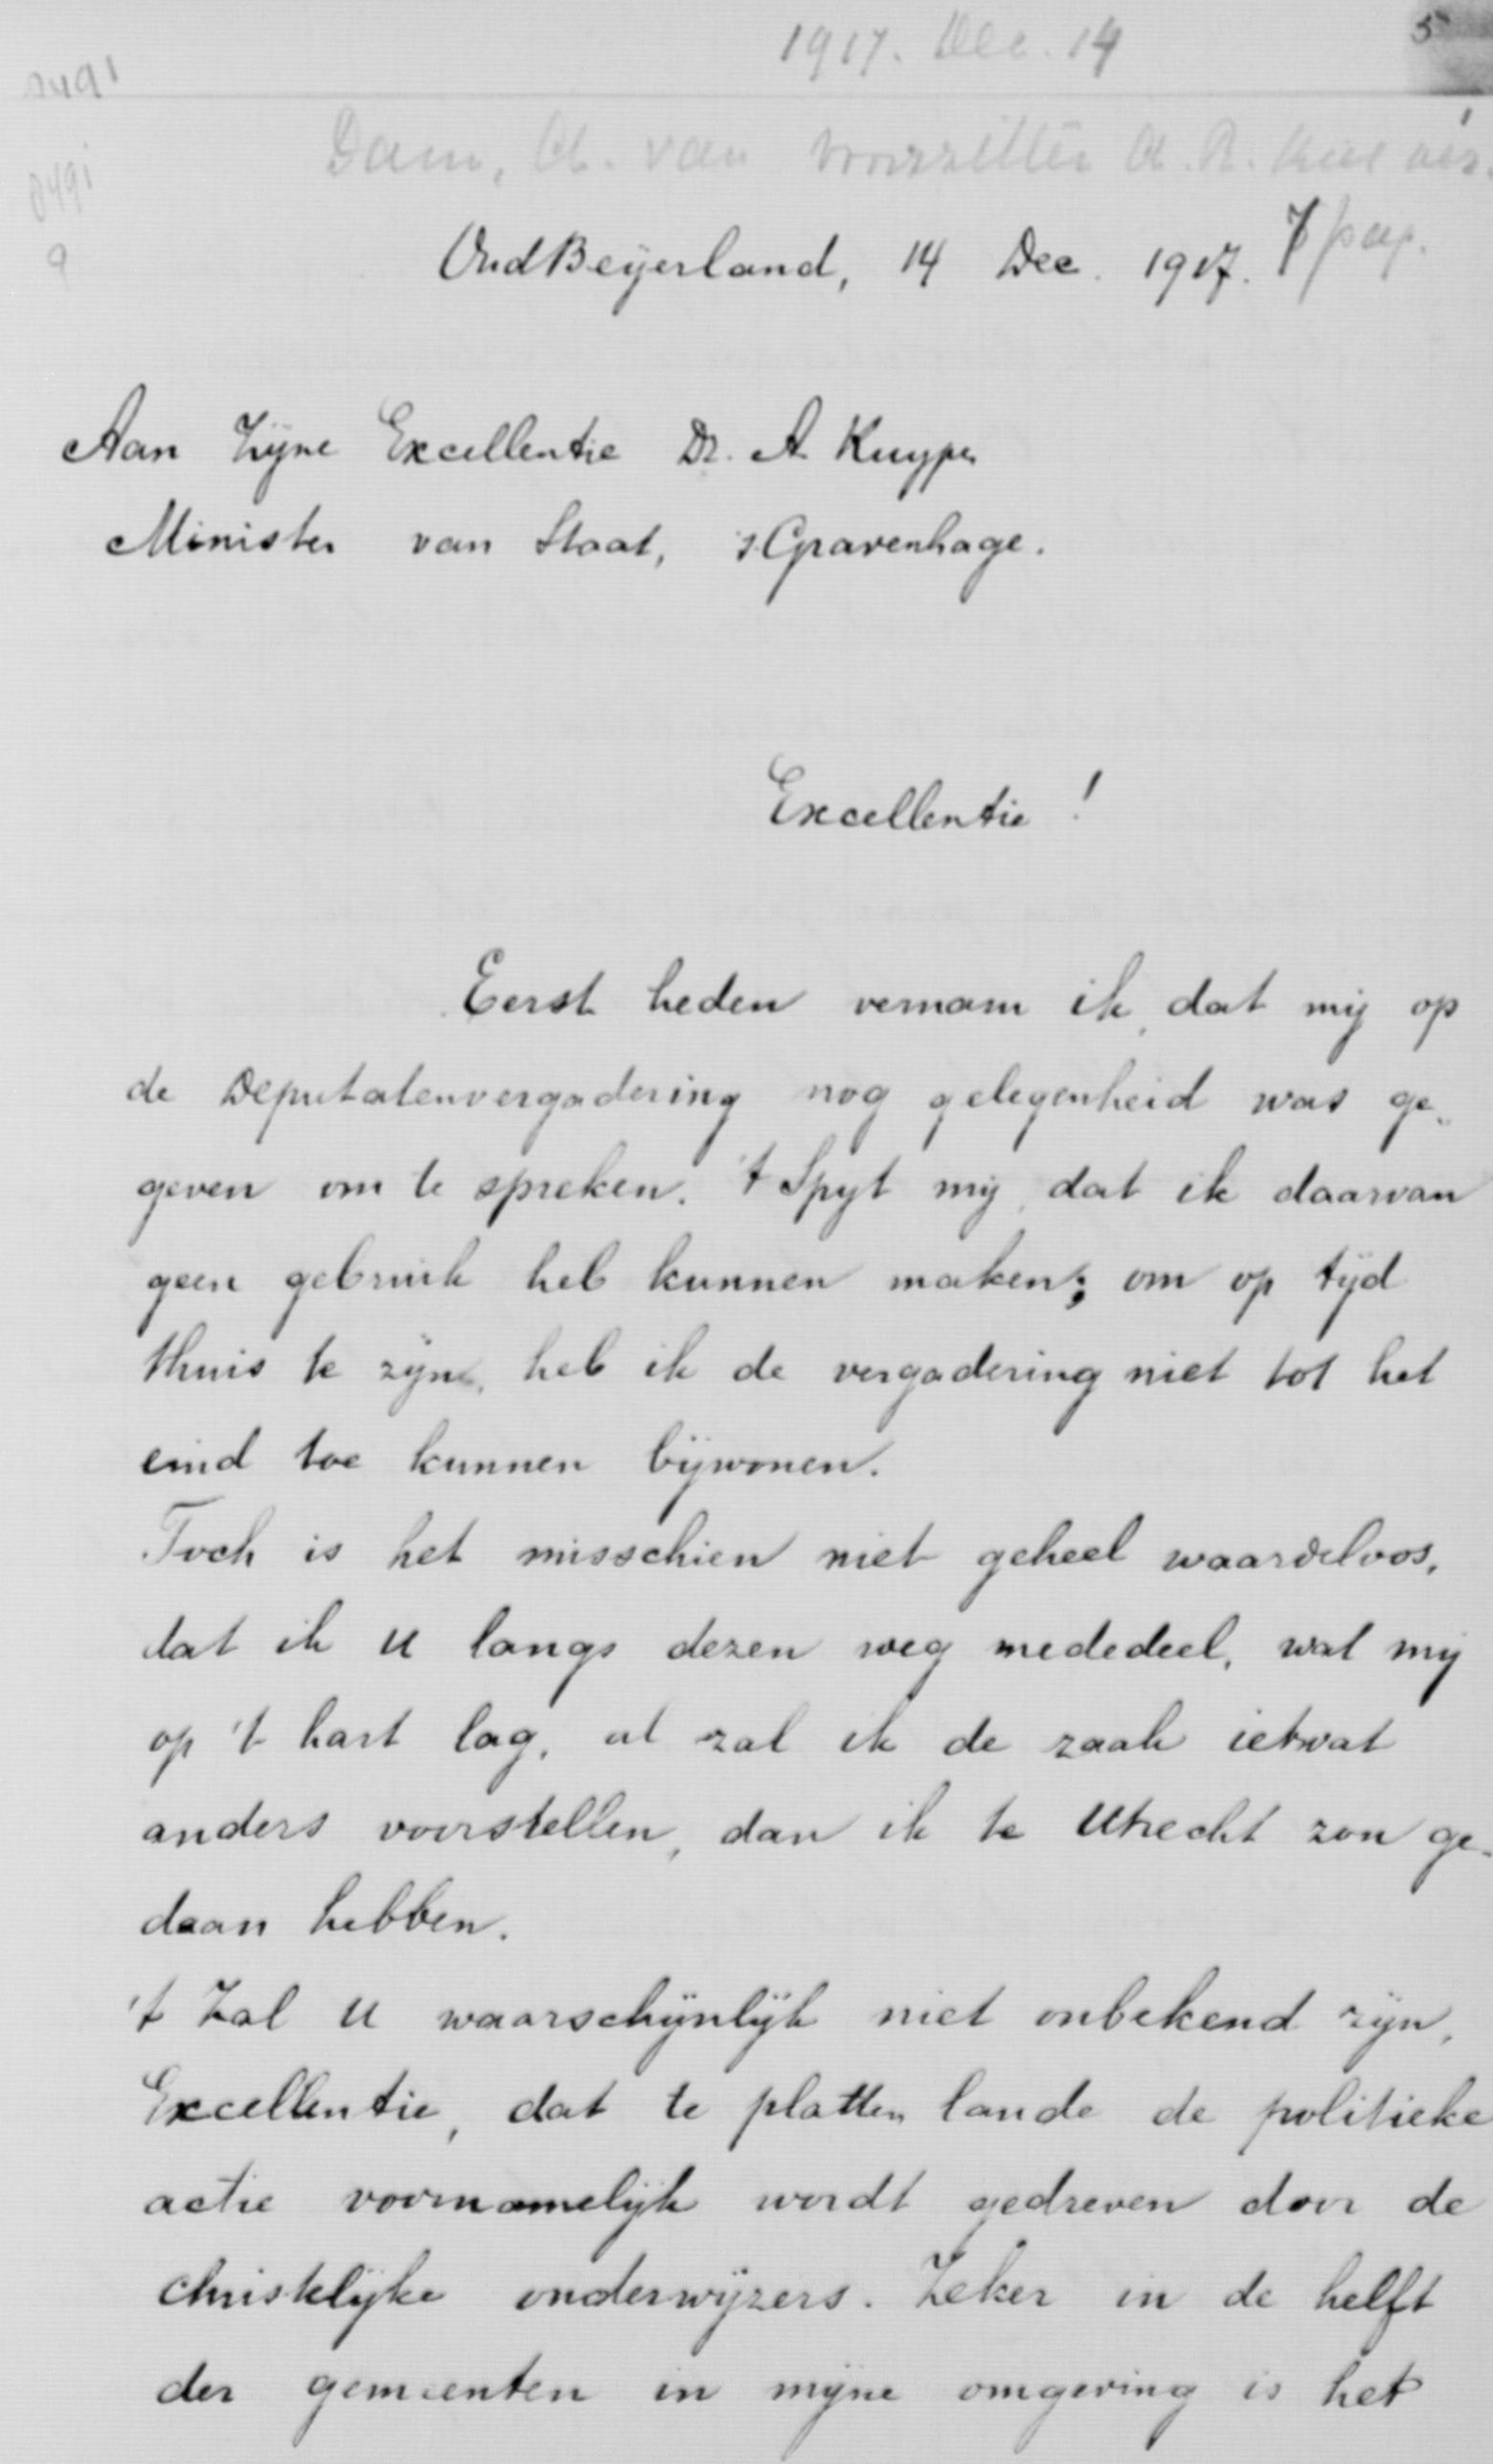 1917. Dec. 14
5
Dam, A. van voorzitter A.R. Kiesver.
9
OudBeijerland, 14 Dec. 1917. 7 pag.
Aan Zijne Excellentie Dr. A Kuyper
Minister van Staat, 's Gravenhage.
Excellentie!
Eerst heden vernam ik, dat mij op
de Deputatenvergadering nog gelegenheid was ge-
geven om te spreken. 't Spijt mij, dat ik daarvan
geen gebruik heb kunnen maken; om op tijd
thuis te zijn, heb ik de vergadering niet tot het
eind toe kunnen bijwonen.
Toch is het misschien niet geheel waardeloos,
dat ik U langs dezen weg mededeel, wat mij
op 't hart lag, al zal ik de zaak ietwat
anders voorstellen, dan ik te Utrecht zou ge-
daan hebben.
't Zal U waarschijnlijk niet onbekend zijn,
Excellentie, dat te platten lande de politieke
actie voornamelijk wordt gedreven door de
christelijke onderwijzers. Zeker in de helft
der gemeenten in mijne omgeving is het